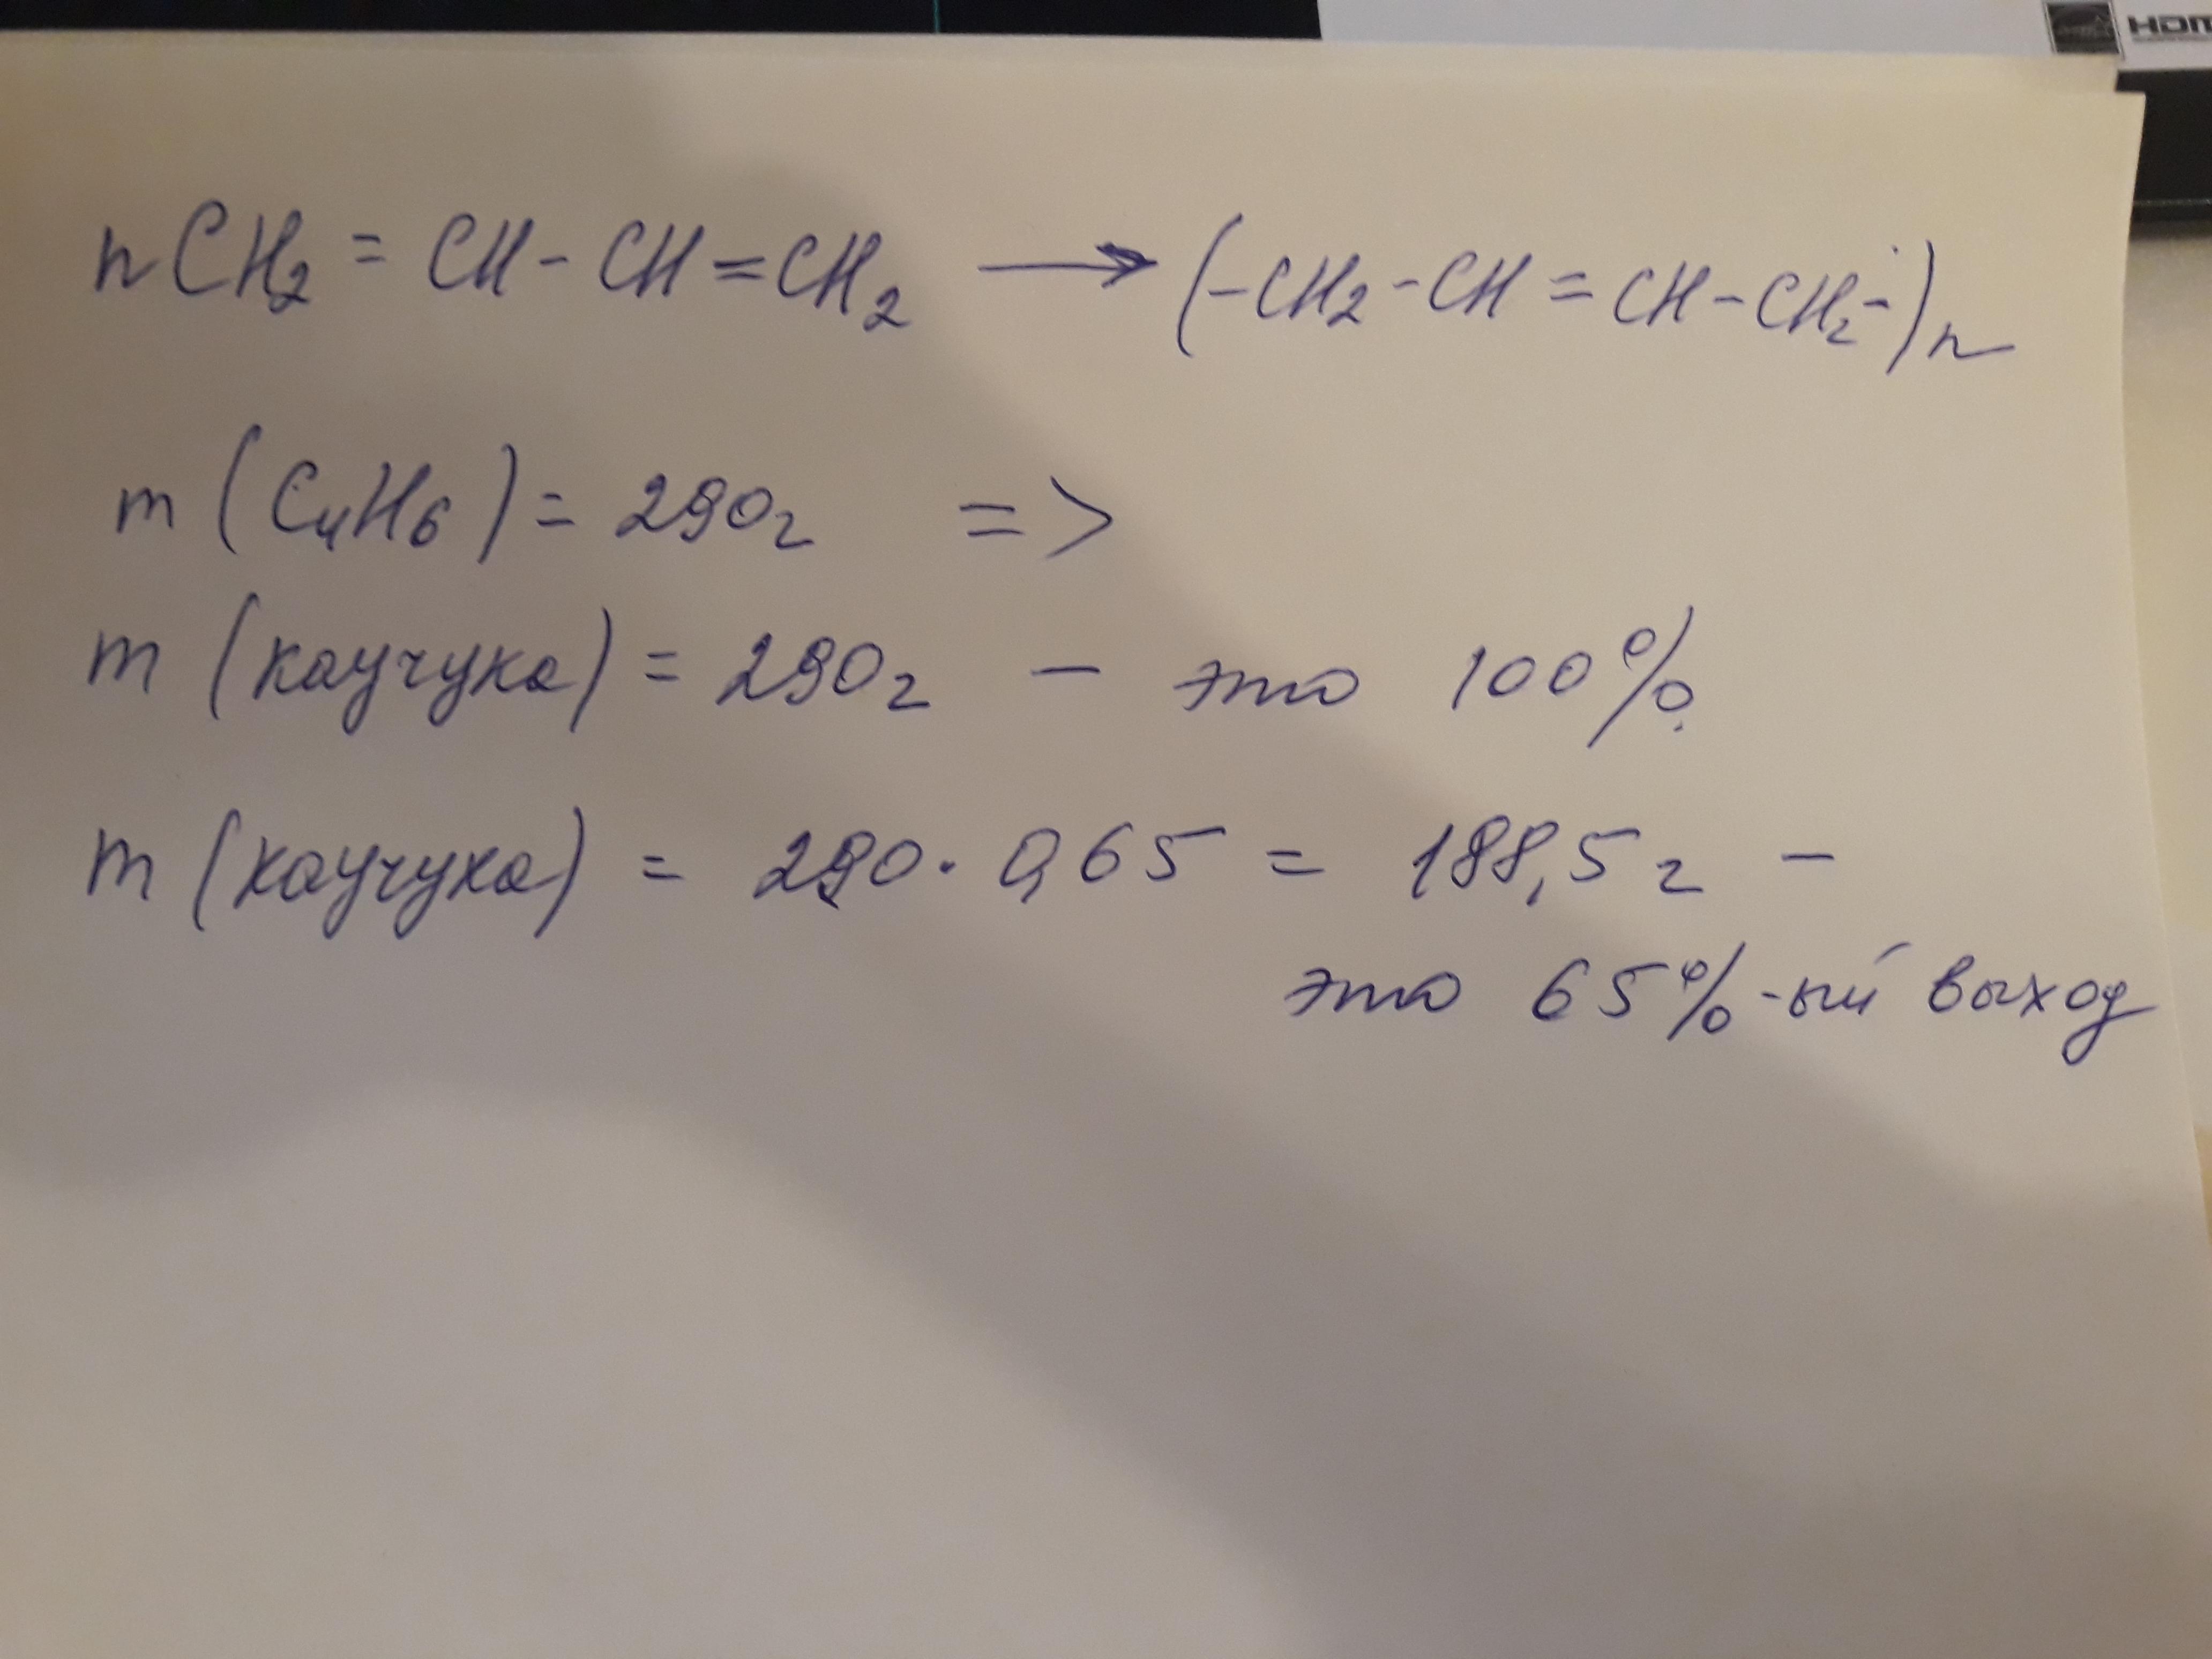 nCH₂ = CH - CH = CH₂ → (-CH₂ - CH = CH - CH₂-)n
m (C₄H₆) = 290г =>
m (каучука) = 290г - это 100%
m (каучука) = 290 · 0,65 = 188,5г -
это 65%-ый выход